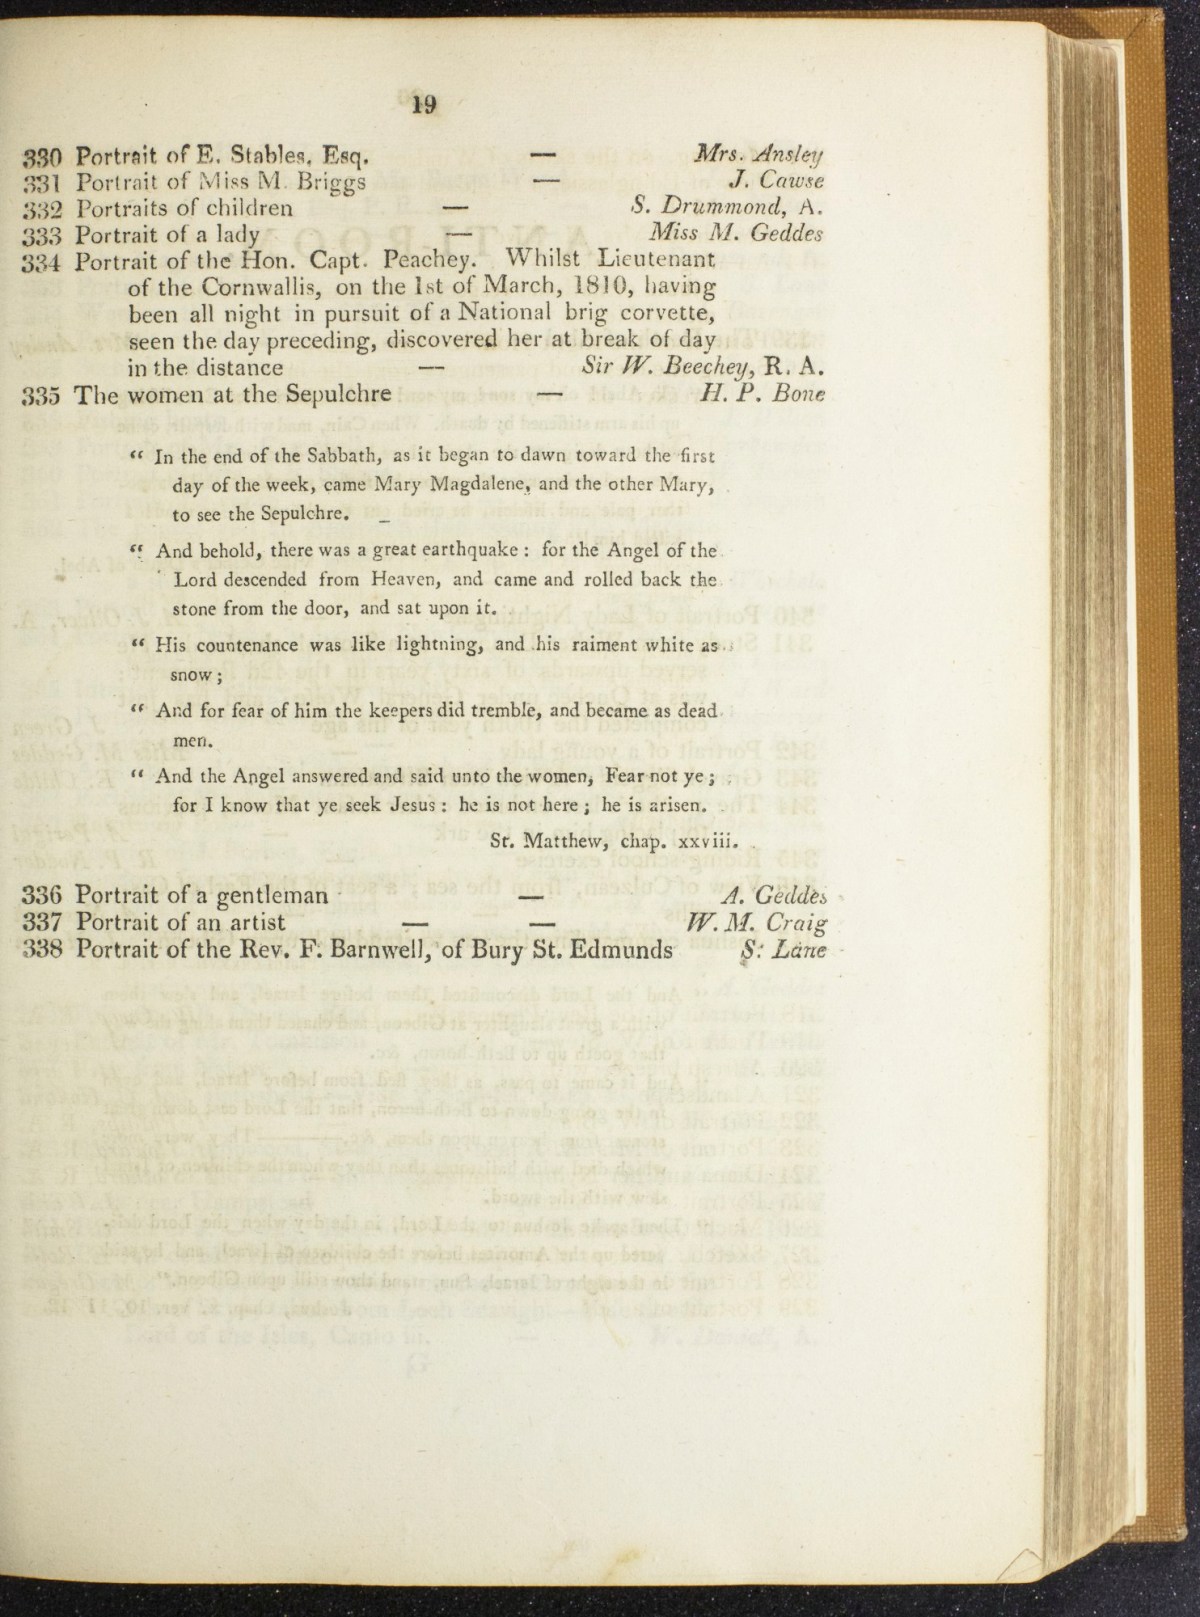 19
330 Portrait of E. Stables, Esq. — Mrs. Ansley
331 Portrait of Miss M. Briggs — J. Cawse
332 Portraits of children — S. Drummond, A.
333 Portrait of a lady — Miss M. Geddes
334 Portrait of the Hon. Capt. Peachey. Whilst Lieutenant
of the Cornwallis, on the 1st of March, 1810, having
been all night in pursuit of a National brig corvette,
seen the day preceding, discovered her at break of day
in the distance — Sir W. Beechey, R. A.
335 The women at the Sepulchre — H. P. Bone
“ In the end of the Sabbath, as it began to dawn toward the first
day of the week, came Mary Magdalene, and the other Mary,
to see the Sepulchre.
“ And behold, there was a great earthquake : for the Angel of the
Lord descended from Heaven, and came and rolled back the
stone from the door, and sat upon it.
“ His countenance was like lightning, and his raiment white as
snow ;
“ And for fear of him the keepers did tremble, and became as dead
men.
“ And the Angel answered and said unto the women, Fear not ye ;
for I know that ye seek Jesus : he is not here ; he is arisen.
St. Matthew, chap. xxviii.
336 Portrait of a gentleman — A. Geddes
337 Portrait of an artist — — W. M. Craig
338 Portrait of the Rev. F. Barnwell, of Bury St. Edmunds S. Lane